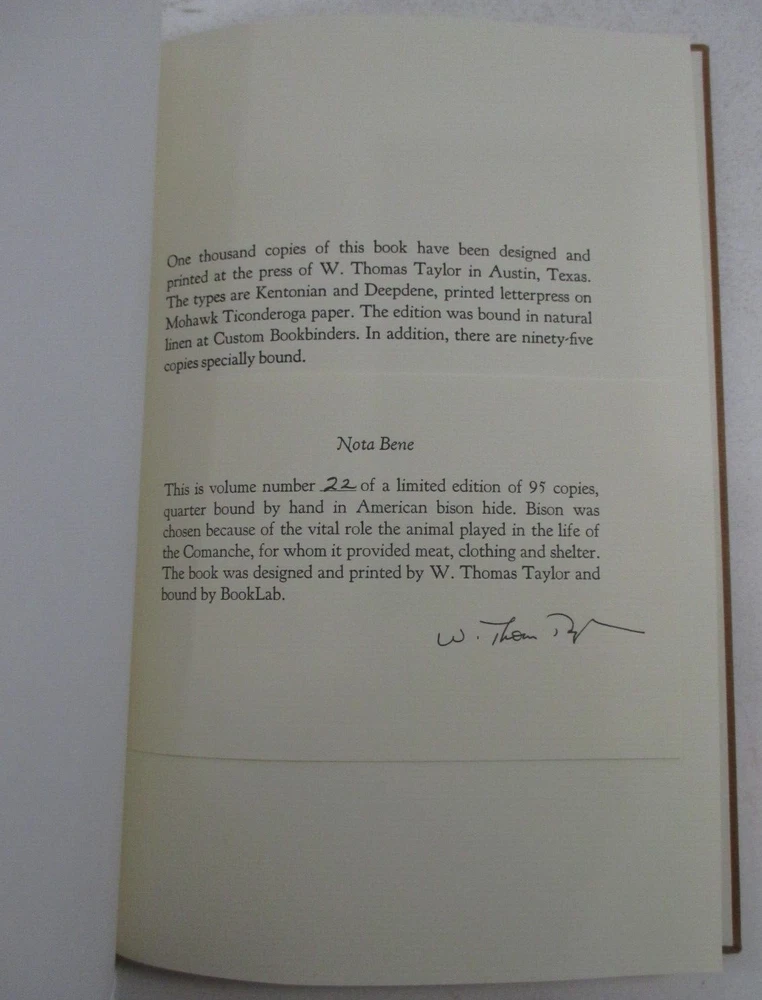 One thousand copies of this book have been designed and
printed at the press of W. Thomas Taylor in Austin, Texas.
The types are Kentonian and Deepdene, printed letterpress on
Mohawk Ticonderoga paper. The edition was bound in natural
linen at Custom Bookbinders. In addition, there are ninety-five
copies specially bound.
Nota Bene
This is volume number 22 of a limited edition of 95 copies,
quarter bound by hand in American bison hide. Bison was
chosen because of the vital role the animal played in the life of
the Comanche, for whom it provided meat, clothing and shelter.
The book was designed and printed by W. Thomas Taylor and
bound by BookLab.
W. Thom Taylor